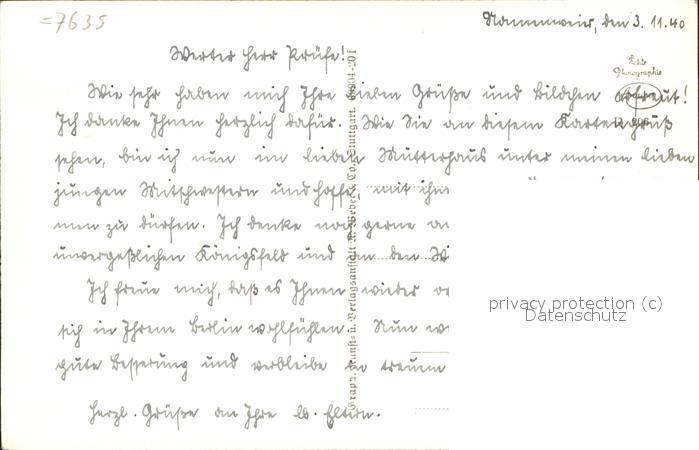 =7635
Nonnenweier, den 3.11.40
Werter Herr Prüfe!
Echte Photographie
Wie sehr haben mich Ihre lieben Grüße und Bildchen erfreut!
Ich danke Ihnen herzlich dafür. Wie Sie an diesem Kartengruß
sehen, bin ich nun im lieben Mutterhaus unter meinen lieben
jungen Mitschwestern und hoffe, mit ihn
men zu dürfen. Ich denke noch gerne an
unvergeßlichen Königsfeld und an den Wi
Ich freue mich, daß es Ihnen wieder
sich in Ihrem Berlin wohlfühlen. Nun
gute Besserung und verbleibe in treuem
herzl. Grüße an Ihre lb. Eltern.
Graph. Kunst- u. Verlagsanstalt A. Weber & Co., Stuttgart.
privacy protection (c)
Datenschutz